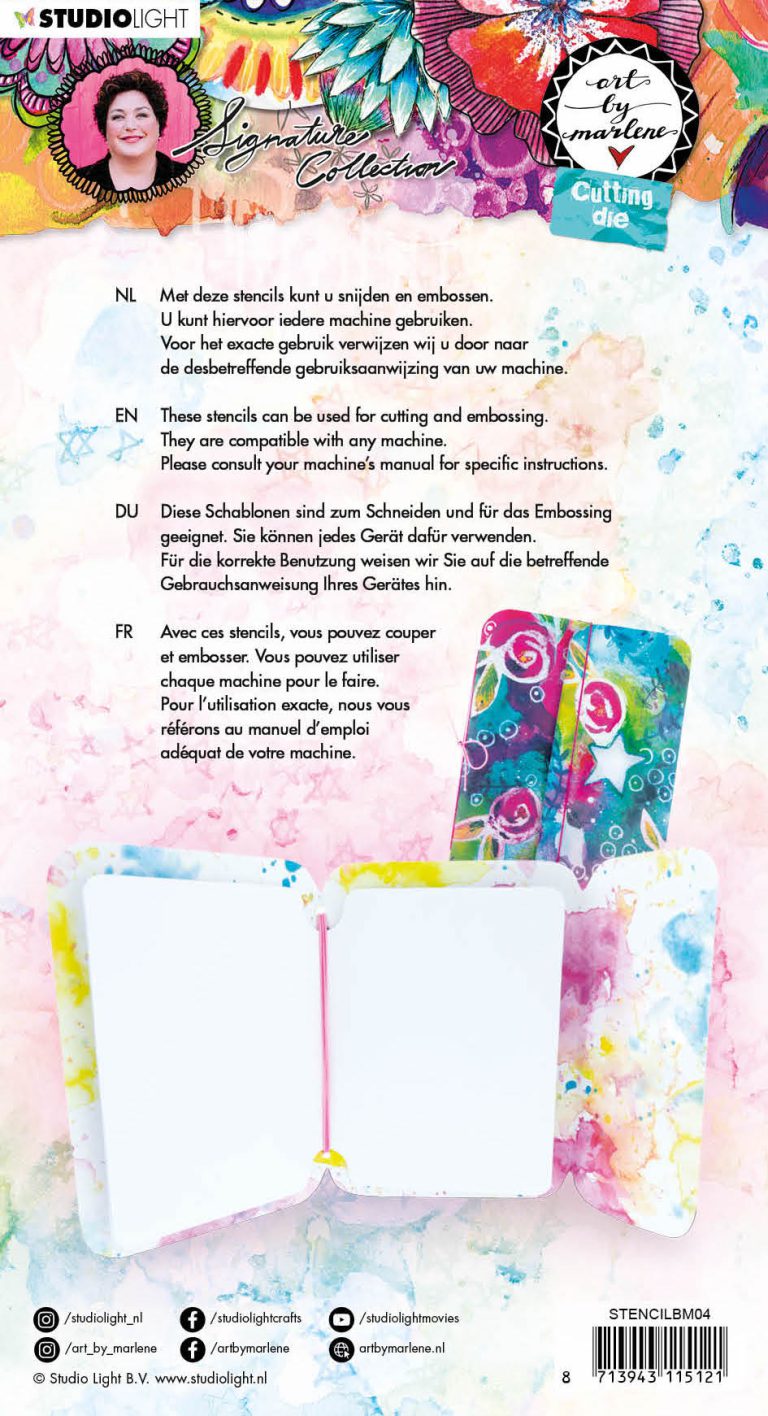 STUDIOLIGHT
Signature
Collection
art
by
marlene
Cutting
die
NL Met deze stencils kunt u snijden en embossen.
U kunt hiervoor iedere machine gebruiken.
Voor het exacte gebruik verwijzen wij u door naar
de desbetreffende gebruiksaanwijzing van uw machine.
EN These stencils can be used for cutting and embossing.
They are compatible with any machine.
Please consult your machine's manual for specific instructions.
DU Diese Schablonen sind zum Schneiden und für das Embossing
geeignet. Sie können jedes Gerät dafür verwenden.
Für die korrekte Benutzung weisen wir Sie auf die betreffende
Gebrauchsanweisung Ihres Gerätes hin.
FR Avec ces stencils, vous pouvez couper
et embosser. Vous pouvez utiliser
chaque machine pour le faire.
Pour l'utilisation exacte, nous vous
référons au manuel d'emploi
adéquat de votre machine.
/studiolight_nl /studiolightcrafts /studiolightmovies
/art_by_marlene /artbymarlene artbymarlene.nl
© Studio Light B.V. www.studiolight.nl
STENCILBM04
8 713943 115121